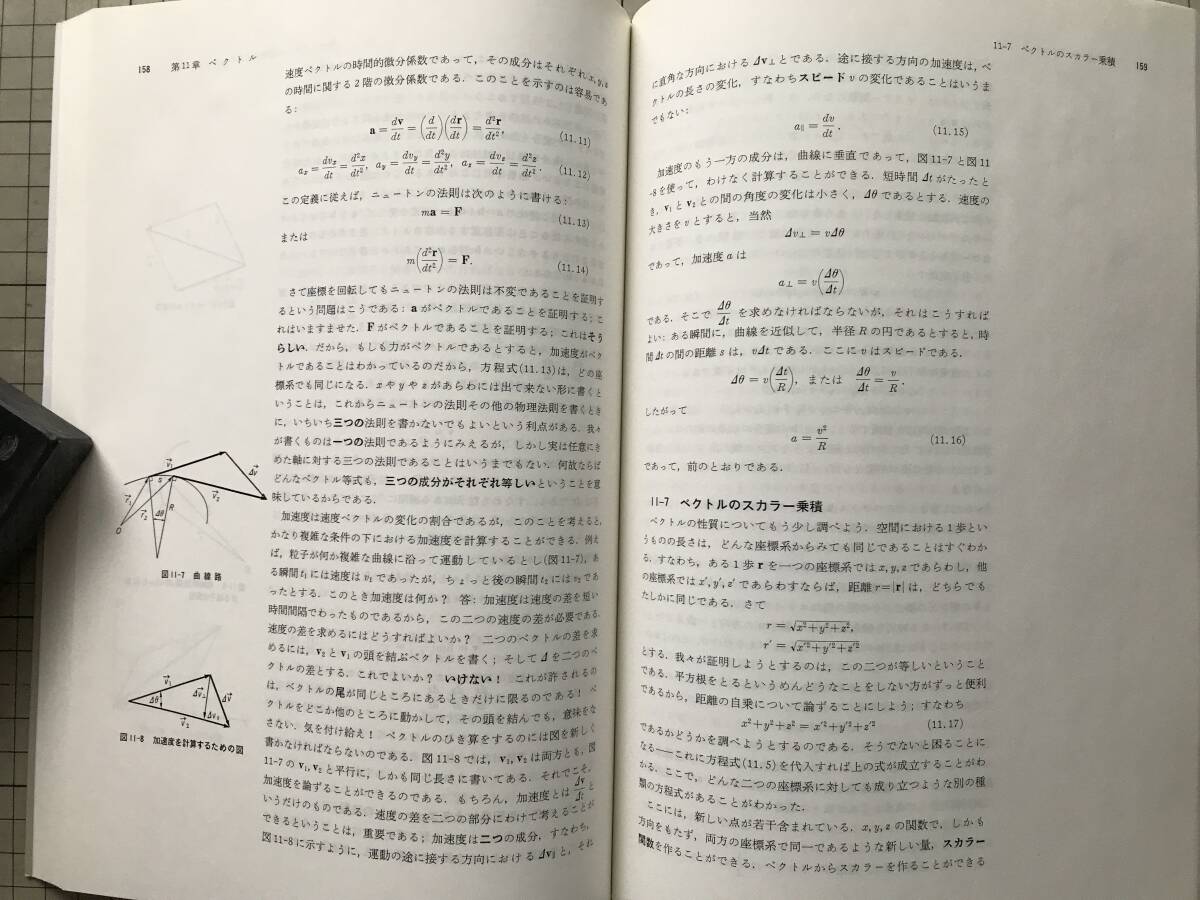 158 第11章 ベクトル
速度ベクトルの時間的微分係数であって，その成分はそれぞれ x, y, z
の時間に関する2階の微分係数である．このことを示すのは容易であ
る：
a = dv/dt = (d/dt)(dr/dt) = d²r/dt², (11.11)
aₓ = dvₓ/dt = d²x/dt², a_y = dv_y/dt = d²y/dt², a_z = dv_z/dt = d²z/dt². (11.12)
この定義に従えば，ニュートンの法則は次のように書ける：
ma = F (11.13)
または
m(d²r/dt²) = F. (11.14)
さて座標を回転してもニュートンの法則は不変であることを証明す
るという問題はこうである：aがベクトルであることを証明する；こ
れはいますませた．Fがベクトルであることを証明する；これはそう
らしい．だから，もしも力がベクトルであるとすると，加速度がベク
トルであることはわかっているのだから，方程式(11.13)は，どの座
標系でも同じになる．xやyやzがあらわには出て来ない形に書くと
いうことは，これからニュートンの法則その他の物理法則を書くとき
に，いちいち三つの法則を書かないでもよいという利点がある．我々
が書くものは一つの法則であるようにみえるが，しかし実は任意にき
めた軸に対する三つの法則であることはいうまでもない．何故ならば
どんなベクトル等式も，三つの成分がそれぞれ等しいということを意
味しているからである．
加速度は速度ベクトルの変化の割合であるが，このことを考えると，
かなり複雑な条件の下における加速度を計算することができる．例え
ば，粒子が何か複雑な曲線に沿って運動しているとし(図11-7)，あ
る瞬間t₁には速度はv₁であったが，ちょっと後の瞬間t₂にはv₂であ
ったとする．このとき加速度は何か？ 答：加速度は速度の差を短い
時間間隔でわったものであるから，この二つの速度の差が必要である．
速度の差を求めるにはどうすればよいか？ 二つのベクトルの差を求
めるには，v₂とv₁の頭を結ぶベクトルを書く；そしてΔを二つのベ
クトルの差とする．これでよいか？ いけない！ これが許されるの
は，ベクトルの尾が同じところにあるときだけに限るのである！ ベ
クトルをどこか他のところに動かして，その頭を結んでも，意味をな
さない．気を付け給え！ ベクトルのひき算をするのには図を新しく
書かなければならないのである．図11-8では，v₁, v₂は両方とも，図
11-7のv₁, v₂と平行に，しかも同じ長さに書いてある．それでこそ，
加速度を論ずることができるのである．もちろん，加速度とはΔv/Δtと
いうだけのものである．速度の差を二つの部分にわけて考えることが
できるということは，重要である；加速度は二つの成分，すなわち，
図11-8に示すように，運動の途に接する方向におけるΔv∥と，それ
v₁ Δv v₂ s r₁ r₂ R Δθ O
図11-7 曲線路
v₁ Δv⊥ Δv Δθ Δv∥ v₂
図11-8 加速度を計算するための図
11-7 ベクトルのスカラー乗積 159
に直角な方向におけるΔv⊥とである．途に接する方向の加速度は，ベ
クトルの長さの変化，すなわちスピードvの変化であることはいうま
でもない：
a∥ = dv/dt. (11.15)
加速度のもう一方の成分は，曲線に垂直であって，図11-7と図11
-8を使って，わけなく計算することができる．短時間Δtがたったと
き，v₁とv₂との間の角度の変化は小さく，Δθであるとする．速度の
大きさをvとすると，当然
Δv⊥ = vΔθ
であって，加速度aは
a⊥ = v(Δθ/Δt)
である．そこでΔθ/Δtを求めなければならないが，それはこうすれば
よい：ある瞬間に，曲線を近似して，半径Rの円であるとすると，時
間Δtの間の距離sは，vΔtである．ここにvはスピードである．
Δθ = v(Δt/R)，または Δθ/Δt = v/R.
したがって
a = v²/R (11.16)
であって，前のとおりである．
11-7 ベクトルのスカラー乗積
ベクトルの性質についてもう少し調べよう．空間における1歩とい
うものの長さは，どんな座標系からみても同じであることはすぐわか
る．すなわち，ある1歩rを一つの座標系ではx, y, zであらわし，他
の座標系ではx′, y′, z′であらわすならば，距離r=|r|は，どちらでも
たしかに同じである．さて
r = √(x²+y²+z²),
r′ = √(x′²+y′²+z′²)
とする．我々が証明しようとするのは，この二つが等しいということ
である．平方根をとるというめんどうなことをしない方がずっと便利
であるから，距離の自乗について論ずることにしよう；すなわち
x²+y²+z² = x′²+y′²+z′² (11.17)
であるかどうかを調べようとするのである．そうでないと困ることに
なる——これに方程式(11.5)を代入すれば上の式が成立することがわ
かる．ここで，どんな二つの座標系に対しても成り立つような別の種
類の方程式があることがわかった．
ここには，新しい点が若干含まれている．x, y, zの関数で，しかも
方向をもたず，両方の座標系で同一であるような新しい量，スカラー
関数を作ることができる．ベクトルからスカラーを作ることができる